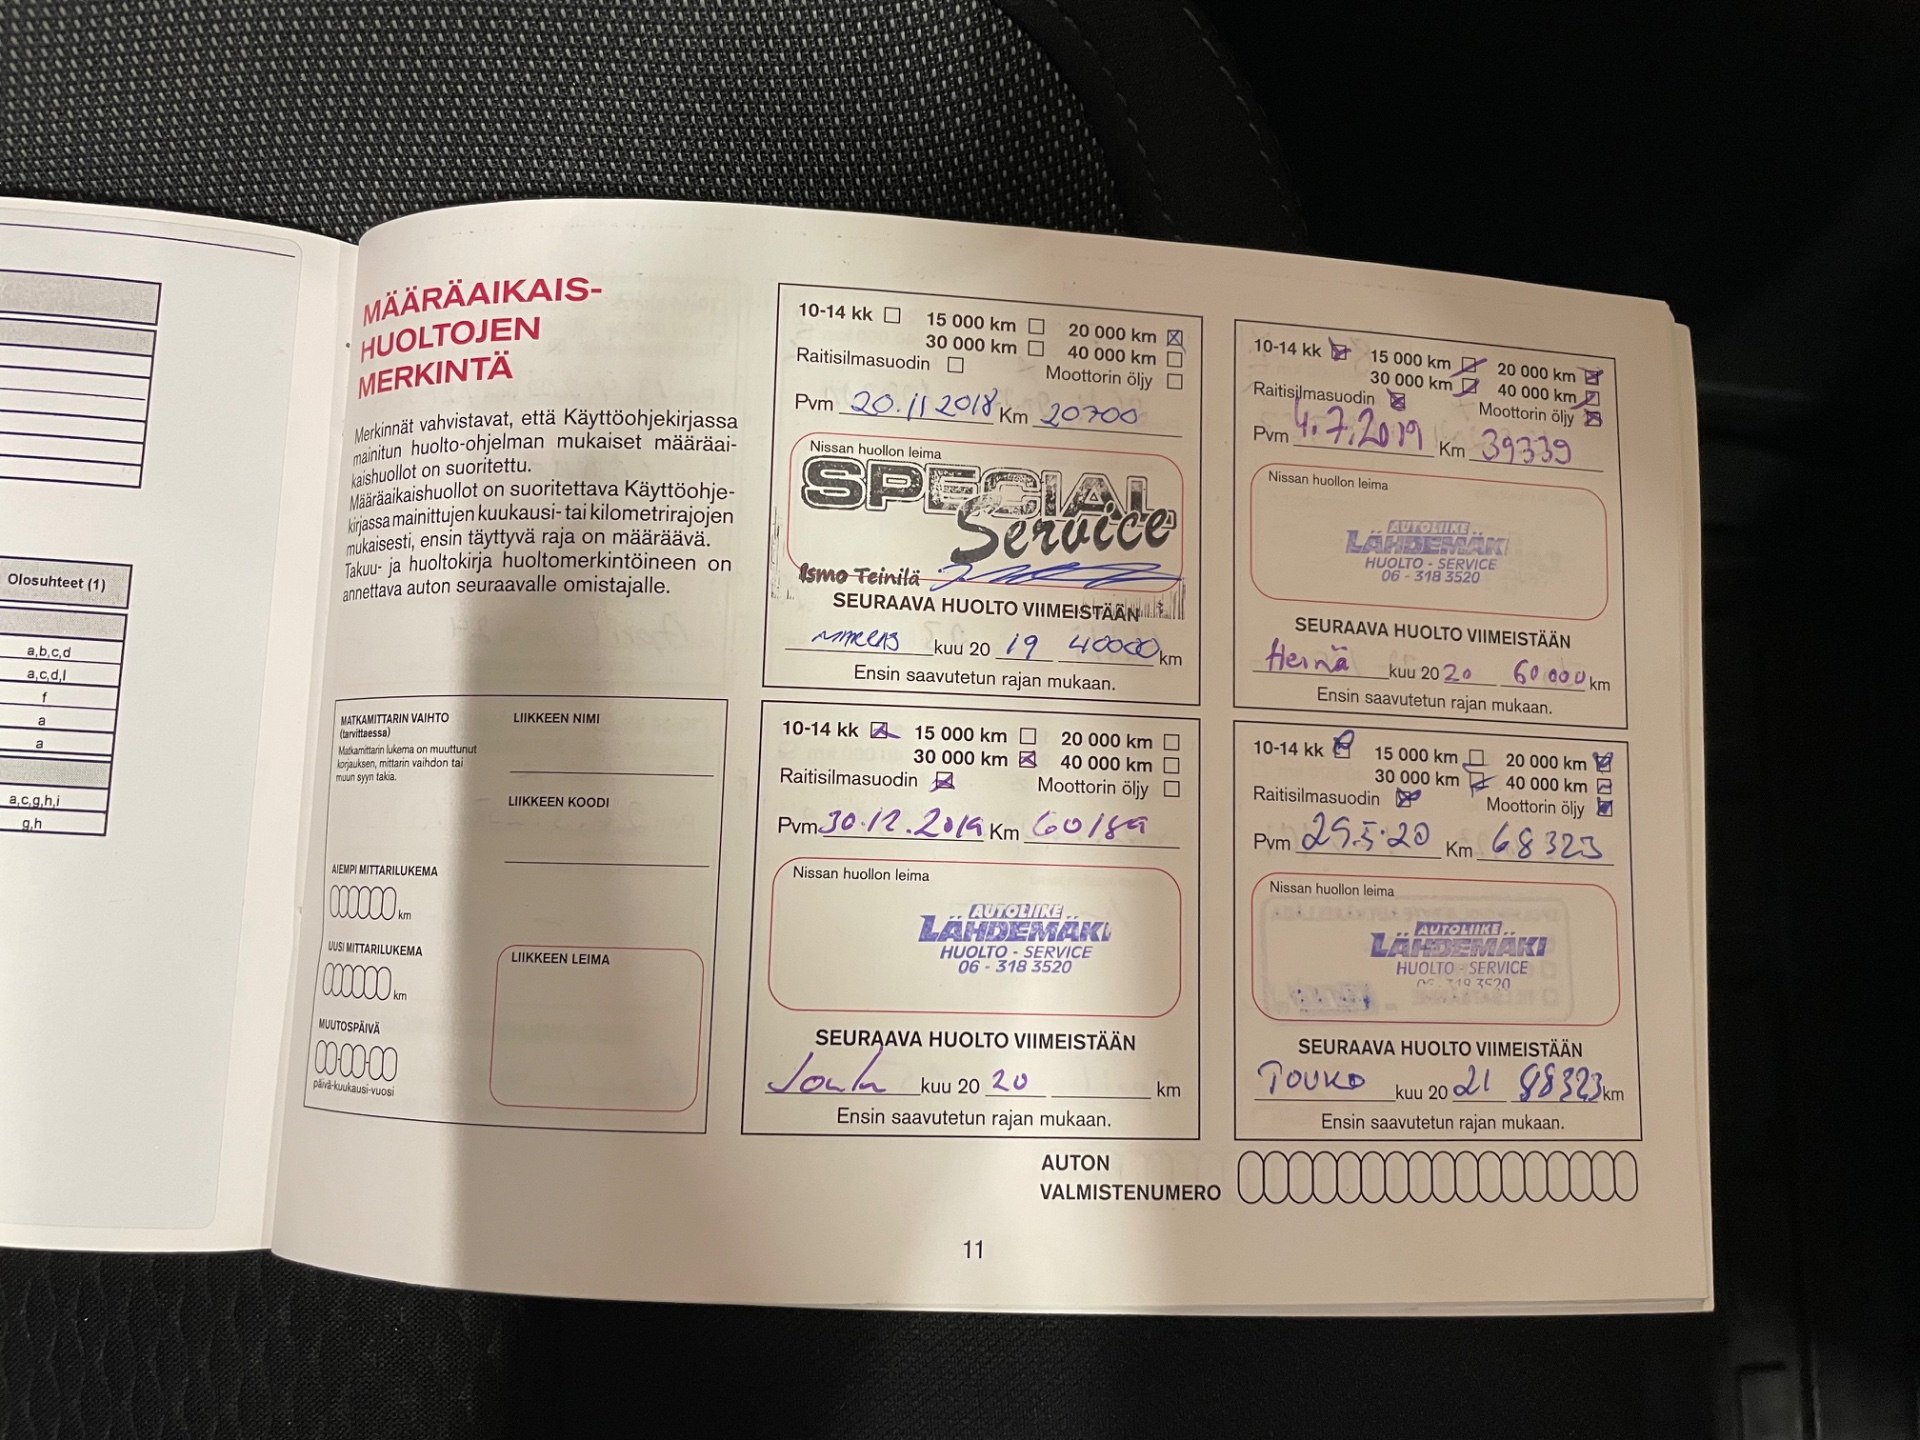 Olosuhteet (1)
a,b,c,d
a,c,d,l
f
a
a
a,c,g,h,i
g,h
MÄÄRÄAIKAIS-
HUOLTOJEN
MERKINTÄ
Merkinnät vahvistavat, että Käyttöohjekirjassa
mainitun huolto-ohjelman mukaiset määräai-
kaishuollot on suoritettu.
Määräaikaishuollot on suoritettava Käyttöohje-
kirjassa mainittujen kuukausi- tai kilometrirajojen
mukaisesti, ensin täyttyvä raja on määräävä.
Takuu- ja huoltokirja huoltomerkintöineen on
annettava auton seuraavalle omistajalle.
MATKAMITTARIN VAIHTO
(tarvittaessa)
Matkamittarin lukema on muuttunut
korjauksen, mittarin vaihdon tai
muun syyn takia.
AIEMPI MITTARILUKEMA
km
UUSI MITTARILUKEMA
km
MUUTOSPÄIVÄ
päivä-kuukausi-vuosi
LIIKKEEN NIMI
LIIKKEEN KOODI
LIIKKEEN LEIMA
10-14 kk 15 000 km 20 000 km
30 000 km 40 000 km
Raitisilmasuodin Moottorin öljy
Pvm 20.11 2018 Km 20700
Nissan huollon leima
SPECIAL
Service
Ismo Teinilä
SEURAAVA HUOLTO VIIMEISTÄÄN
MARRAS kuu 20 19 40000 km
Ensin saavutetun rajan mukaan.
10-14 kk 15 000 km 20 000 km
30 000 km 40 000 km
Raitisilmasuodin Moottorin öljy
Pvm 4.7.2019 Km 39339
Nissan huollon leima
AUTOLIIKE
LÄHDEMÄKI
HUOLTO - SERVICE
06 - 318 3520
SEURAAVA HUOLTO VIIMEISTÄÄN
Heinä kuu 20 20 60 000 km
Ensin saavutetun rajan mukaan.
10-14 kk 15 000 km 20 000 km
30 000 km 40 000 km
Raitisilmasuodin Moottorin öljy
Pvm 30.12.2019 Km 60189
Nissan huollon leima
AUTOLIIKE
LÄHDEMÄKI
HUOLTO - SERVICE
06 - 318 3520
SEURAAVA HUOLTO VIIMEISTÄÄN
Joulu kuu 20 20 km
Ensin saavutetun rajan mukaan.
10-14 kk 15 000 km 20 000 km
30 000 km 40 000 km
Raitisilmasuodin Moottorin öljy
Pvm 29.5.20 Km 68323
Nissan huollon leima
AUTOLIIKE
LÄHDEMÄKI
HUOLTO - SERVICE
06 - 318 3520
SEURAAVA HUOLTO VIIMEISTÄÄN
TOUKO kuu 20 21 88323 km
Ensin saavutetun rajan mukaan.
AUTON
VALMISTENUMERO
11